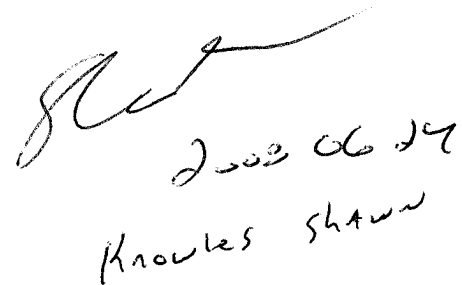 2003 06 24
Knowles Shawn